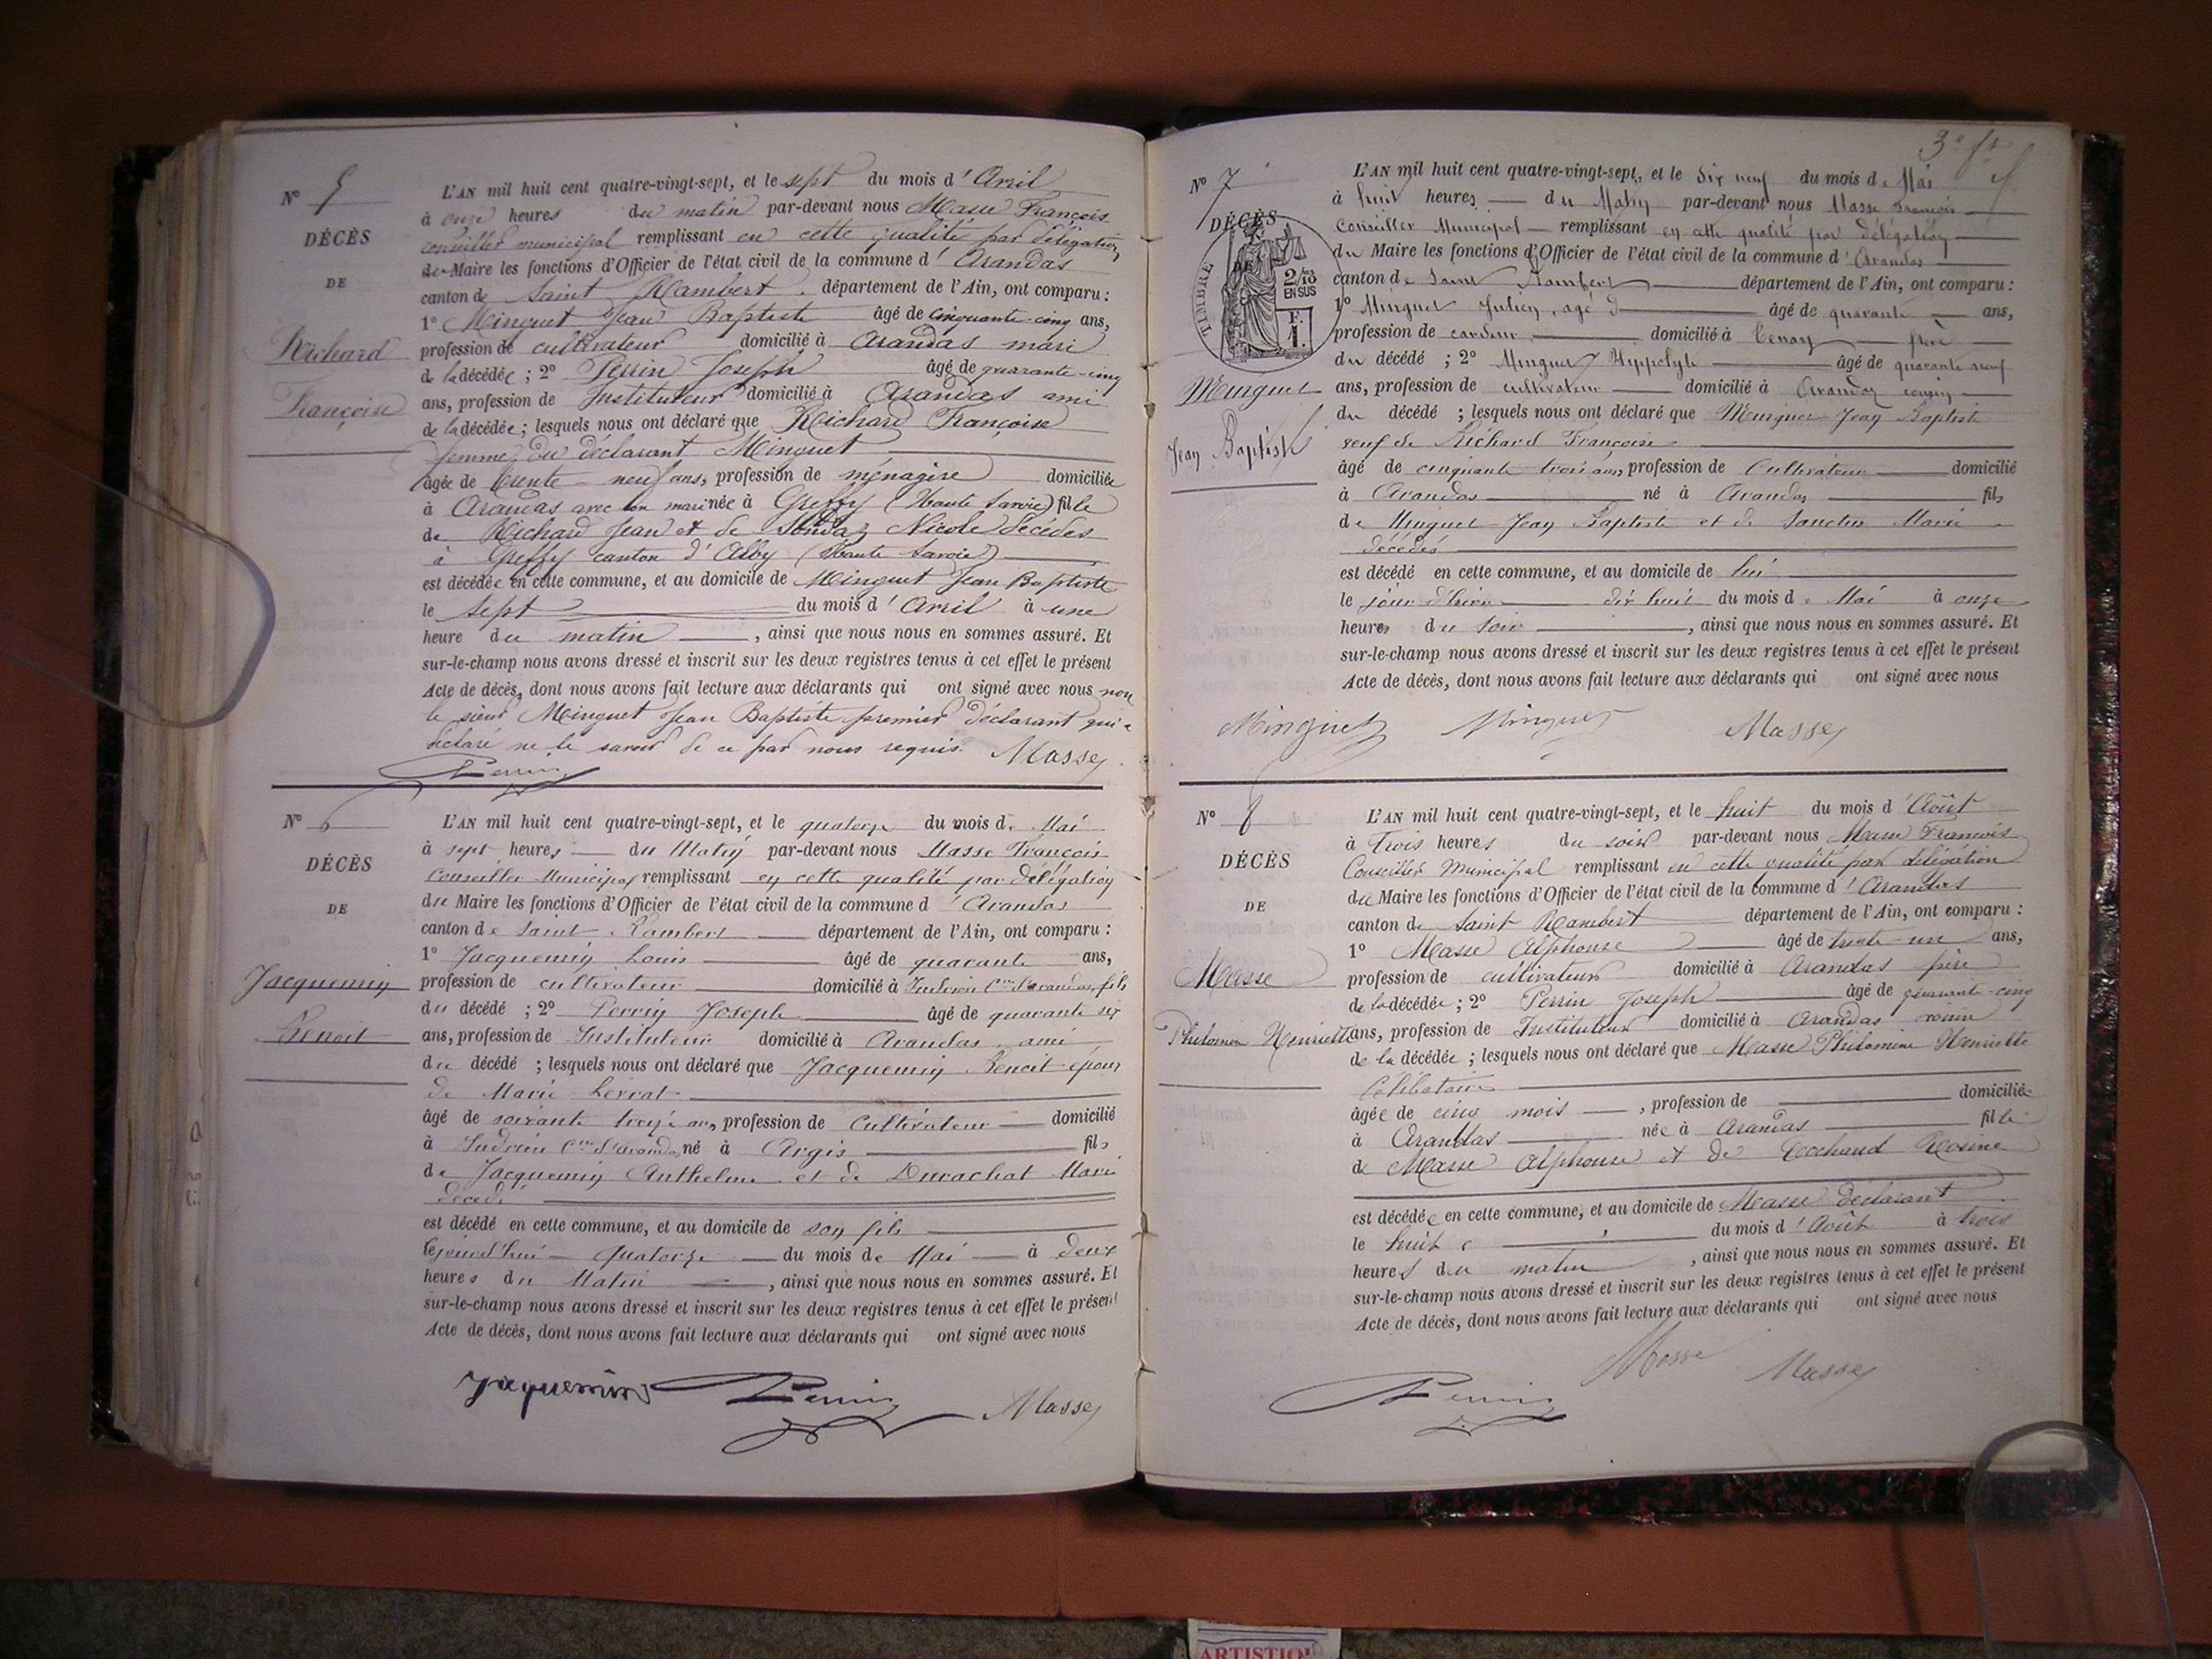 N° 5
DÉCÈS
DE
Richard
Françoise
L'AN mil huit cent quatre-vingt-sept, et le sept du mois d'Avril
à onze heures du matin par-devant nous Masse François
conseiller municipal remplissant en cette qualité par délégation
du Maire les fonctions d'Officier de l'état civil de la commune d'Arandas
canton de Saint Rambert, département de l'Ain, ont comparu :
1° Minguet Jean Baptiste âgé de cinquante-cinq ans,
profession de cultivateur domicilié à Arandas mari
de la décédée ; 2° Perrin Joseph âgé de quarante-cinq
ans, profession de Instituteur domicilié à Arandas ami
de la décédée ; lesquels nous ont déclaré que Richard Françoise
femme du déclarant Minguet
âgée de trente-neuf ans, profession de ménagère domiciliée
à Arandas avec son mari née à Greffy (Haute Savoie) fille
de Richard Jean et de Sondaz Nicole décédés
à Greffy canton d'Alby (Haute Savoie)
est décédée en cette commune, et au domicile de Minguet Jean Baptiste
le sept du mois d'Avril à une
heure du matin, ainsi que nous nous en sommes assuré. Et
sur-le-champ nous avons dressé et inscrit sur les deux registres tenus à cet effet le présent
Acte de décès, dont nous avons fait lecture aux déclarants qui ont signé avec nous non
le sieur Minguet Jean Baptiste premier déclarant qui a
déclaré ne le savoir de ce par nous requis. Masse
Perrin
N° 6
DÉCÈS
DE
Jacquemin
Benoit
L'AN mil huit cent quatre-vingt-sept, et le quatorze du mois de Mai
à sept heures du Matin par-devant nous Masse François
Conseiller Municipal remplissant en cette qualité par délégation
du Maire les fonctions d'Officier de l'état civil de la commune d'Arandas
canton de Saint Rambert département de l'Ain, ont comparu :
1° Jacquemin Louis âgé de quarante ans,
profession de cultivateur domicilié à Indrieu Cne d'Arandas, fils
du décédé ; 2° Perrin Joseph âgé de quarante six
ans, profession de Instituteur domicilié à Arandas, ami
du décédé ; lesquels nous ont déclaré que Jacquemin Benoit époux
de Marie
âgé de soixante treize ans, profession de Cultivateur domicilié
à Indrieu Cne d'Arandas né à Argis fils
de Jacquemin Anthelme et de Durochat Marie
décédé
est décédé en cette commune, et au domicile de son fils
le jourd'hui quatorze du mois de Mai à deux
heures du Matin, ainsi que nous nous en sommes assuré. Et
sur-le-champ nous avons dressé et inscrit sur les deux registres tenus à cet effet le présent
Acte de décès, dont nous avons fait lecture aux déclarants qui ont signé avec nous
Jaquemin Perrin Masse
3e ft
N° 7
DÉCÈS
DE
TIMBRE
2/10
EN SUS
F.
1.
Minguet
Jean Baptiste
L'AN mil huit cent quatre-vingt-sept, et le dix neuf du mois de Mai
à huit heures du Matin par-devant nous Masse François
Conseiller Municipal remplissant en cette qualité par délégation
du Maire les fonctions d'Officier de l'état civil de la commune d'Arandas
canton de Saint Rambert département de l'Ain, ont comparu :
1° Minguet Julien, agé d âgé de quarante ans,
profession de cardeur domicilié à Tenay frère
du décédé ; 2° Minguet Hyppolyte âgé de quarante neuf
ans, profession de cultivateur domicilié à Arandas cousin
du décédé ; lesquels nous ont déclaré que Minguet Jean Baptiste
veuf de Richard Françoise
âgé de cinquante trois ans, profession de Cultivateur domicilié
à Arandas né à Arandas fils
de Minguet Jean Baptiste et de Marie
décédés
est décédé en cette commune, et au domicile de lui
le jour d'hier dix huit du mois de Mai à onze
heures du soir, ainsi que nous nous en sommes assuré. Et
sur-le-champ nous avons dressé et inscrit sur les deux registres tenus à cet effet le présent
Acte de décès, dont nous avons fait lecture aux déclarants qui ont signé avec nous
Minguet Minguet Masse
N° 8
DÉCÈS
DE
Masse
Philomène Henriette
L'AN mil huit cent quatre-vingt-sept, et le huit du mois d'Août
à trois heures du soir par-devant nous Masse François
Conseiller Municipal remplissant en cette qualité par délégation
du Maire les fonctions d'Officier de l'état civil de la commune d'Arandas
canton de Saint Rambert département de l'Ain, ont comparu :
1° Masse Alphonse âgé de trente-un ans,
profession de cultivateur domicilié à Arandas père
de la décédée ; 2° Perrin Joseph âgé de quarante-cinq
ans, profession de Instituteur domicilié à Arandas voisin
de la décédée ; lesquels nous ont déclaré que Masse Philomène Henriette
Célibataire
âgée de cinq mois, profession de domiciliée
à Arandas née à Arandas fille
de Masse Alphonse et de Cochand Rosine
est décédée en cette commune, et au domicile de Masse déclarant
le huit du mois d'Août à trois
heures du matin, ainsi que nous nous en sommes assuré. Et
sur-le-champ nous avons dressé et inscrit sur les deux registres tenus à cet effet le présent
Acte de décès, dont nous avons fait lecture aux déclarants qui ont signé avec nous
Perrin Masse Masse
ARTISTIQ